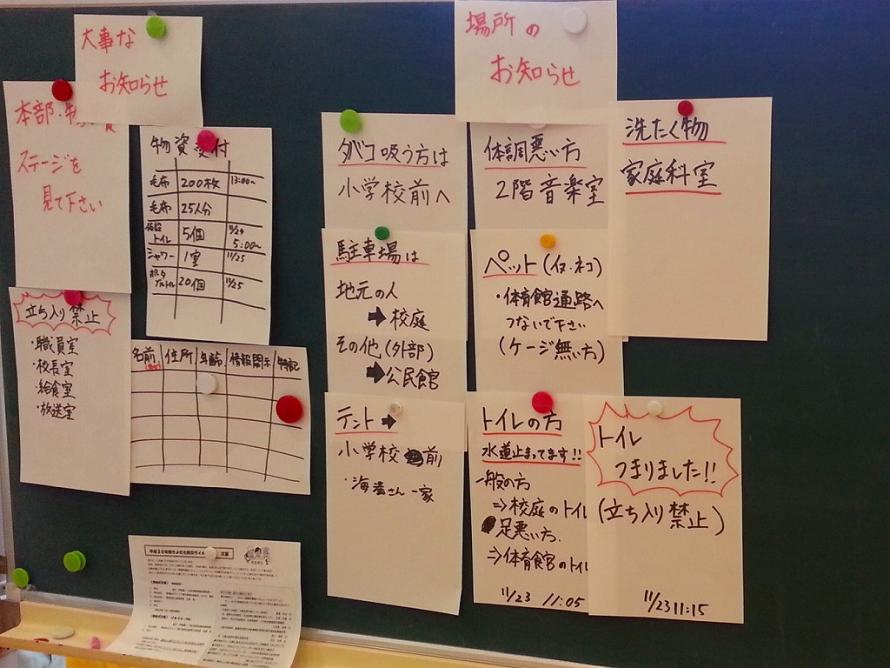 大事な
お知らせ
本部・
ステージを
見て下さい
立ち入り禁止
・職員室
・校長室
・給食室
・放送室
物資受付
毛布 200枚 13:00~
毛布 25人分
仮設トイレ 5個 11/24 5:00~
シャワー 1室 11/25
20個 11/25
名前 住所 年齢 情報開示 特記
場所の
お知らせ
タバコ吸う方は
小学校前へ
駐車場は
地元の人
➡校庭
その他(外部)
➡公民館
テント➡
小学校前
・海さん一家
体調悪い方
2階音楽室
ペット(イヌ・ネコ)
・体育館通路へ
つないで下さい
(ケージ無い方)
トイレの方
水道止まってます!!
一般の方
⇒校庭のトイレ
足悪い方.
⇒体育館のトイレ
11/23 11:05
洗たく物
家庭科室
トイレ
つまりました!!
(立ち入り禁止)
11/23 11:15